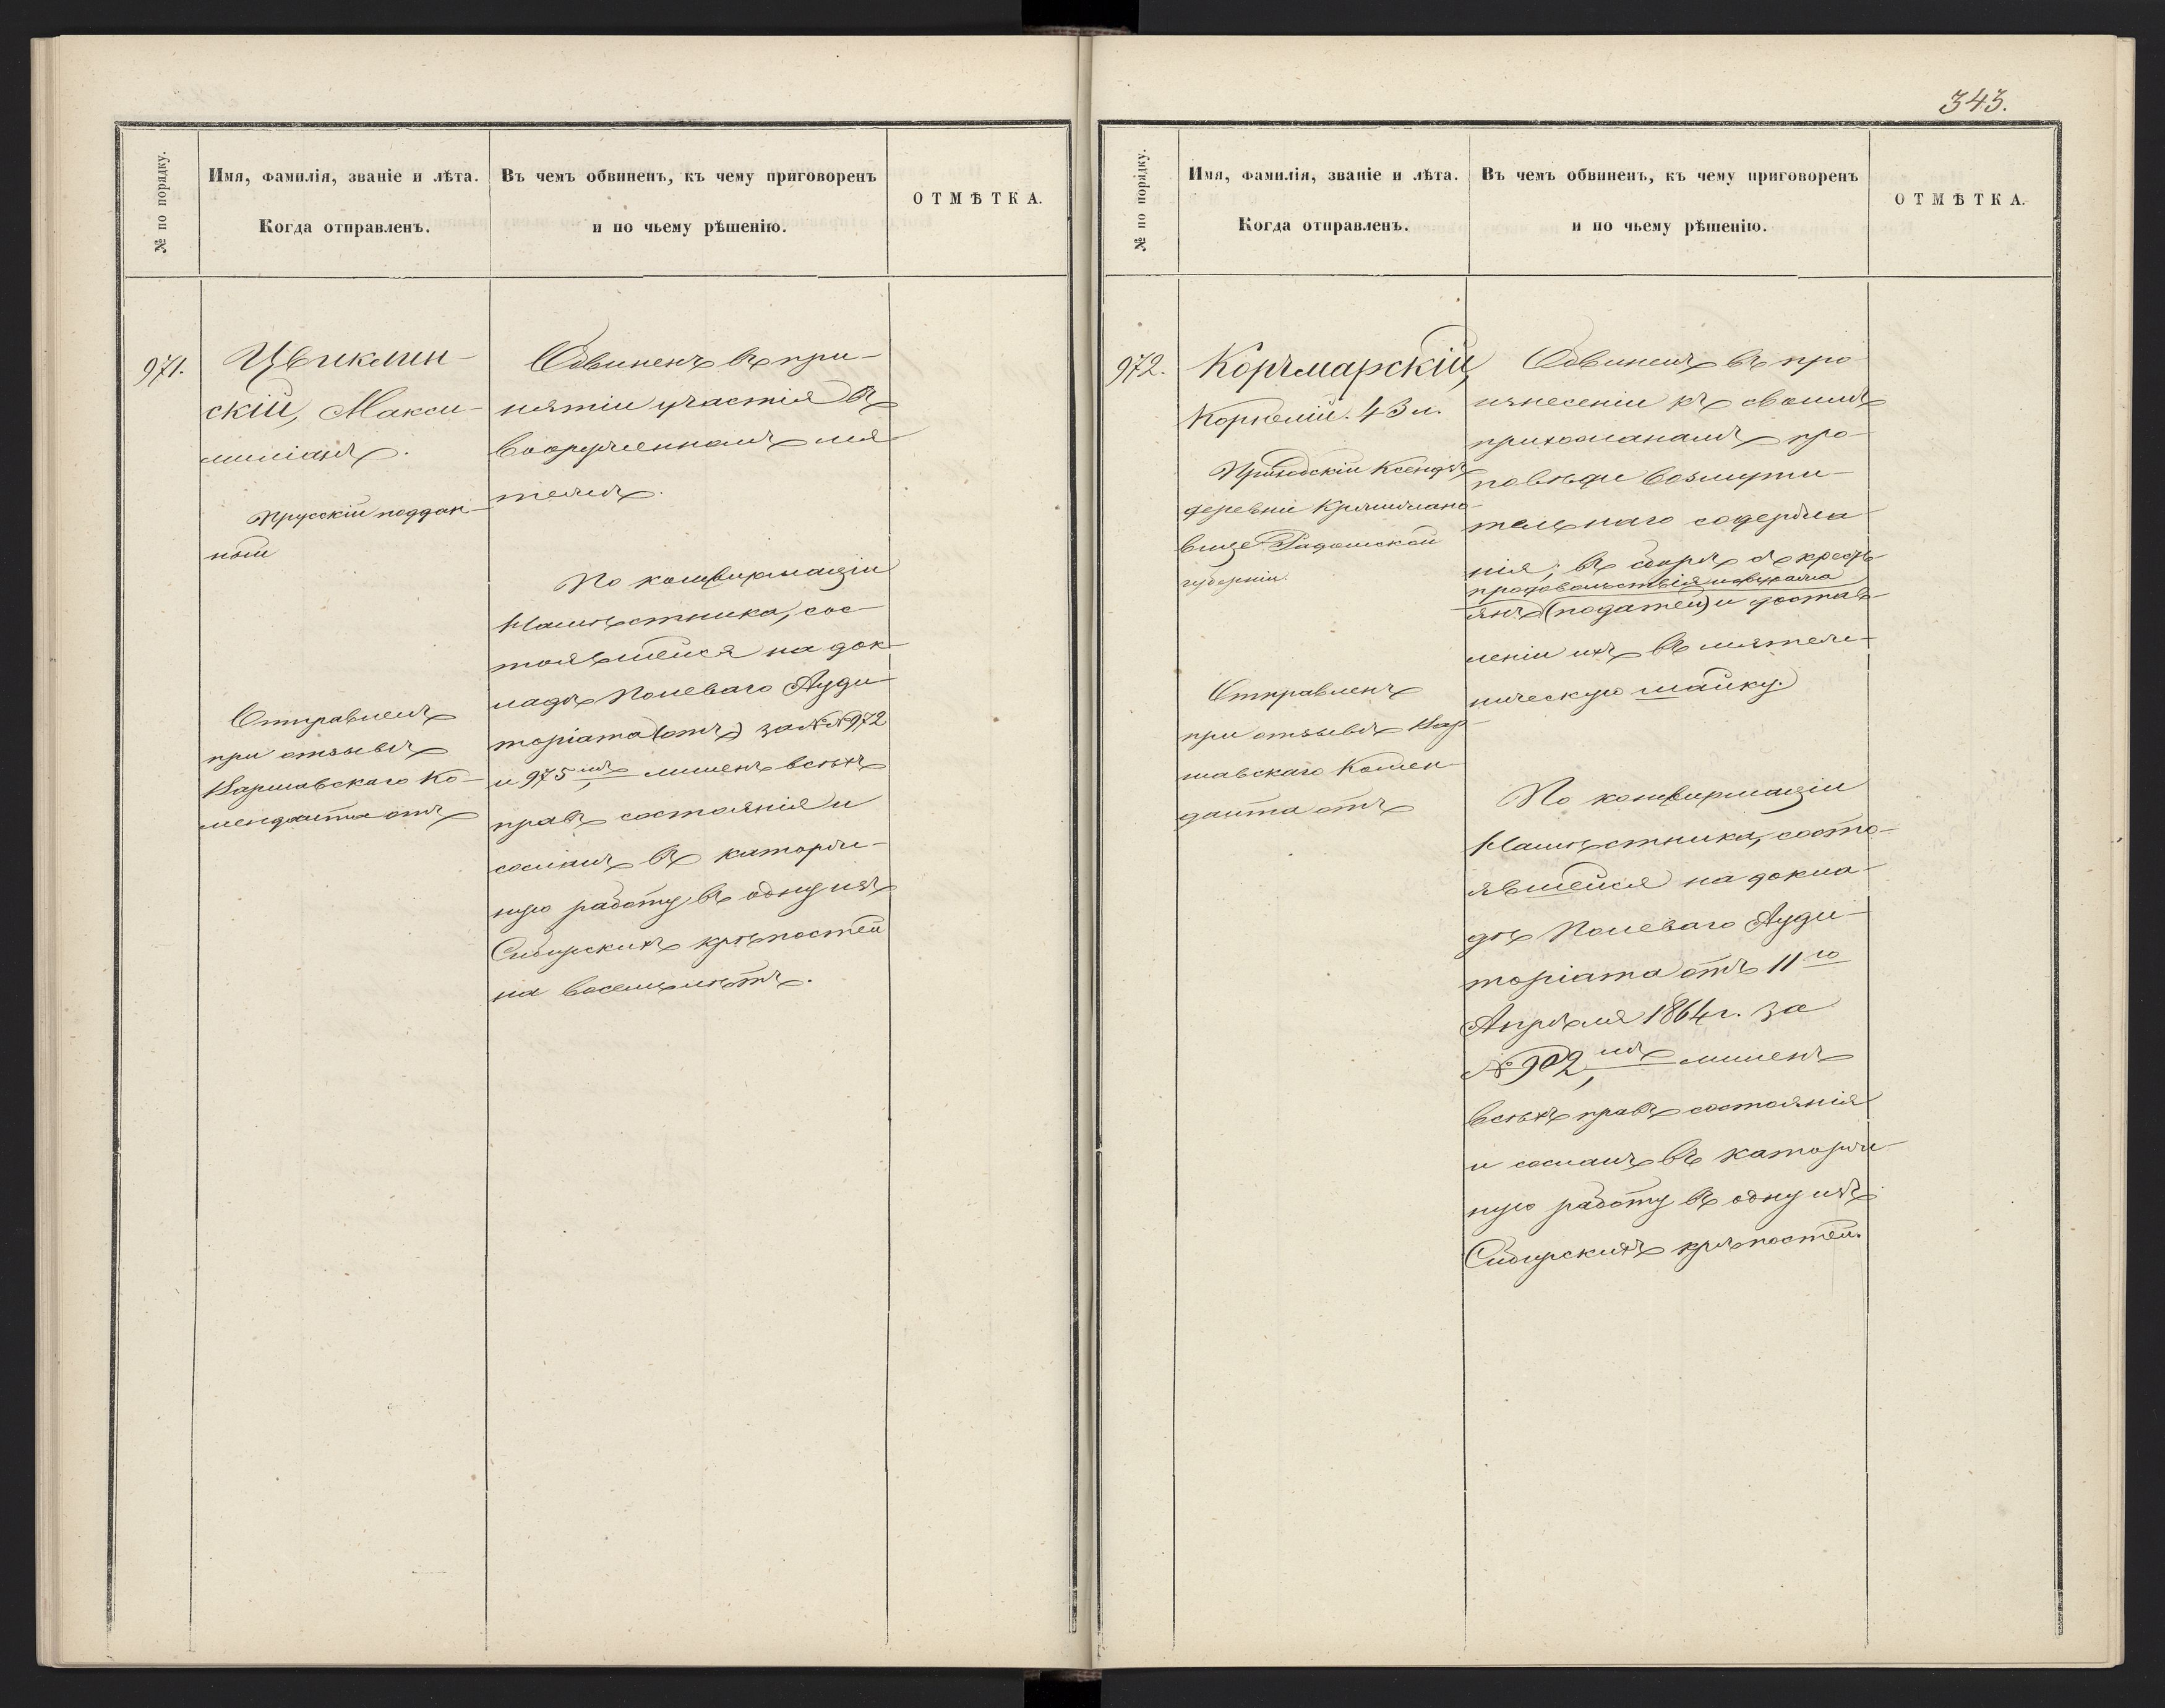 343.
№ по порядку.
Имя, фамилія, званіе и лѣта.
Когда отправленъ.
Въ чемъ обвиненъ, къ чему приговоренъ
и по чьему рѣшенію.
ОТМѢТКА.
971.
Цвиклин-
скій, Макси-
миліанъ.
Прусскій поддан-
ный
Отправленъ
при отзывѣ
Варшавскаго Ко-
менданта отъ
Обвиненъ въ при-
нятіи участія въ
вооруженномъ мя
тежѣ.
По конфирмаціи
Намѣстника, сос-
тоявшейся на док-
ладѣ Полеваго Ауди
торіата (отъ) за №№ 972
и 975мъ, лишенъ всѣхъ
правъ состоянія и
сосланъ въ каторж-
ную работу въ одну изъ
Сибирскихъ крѣпостей
на восемь лѣтъ.
№ по порядку.
Имя, фамилія, званіе и лѣта.
Когда отправленъ.
Въ чемъ обвиненъ, къ чему приговоренъ
и по чьему рѣшенію.
ОТМѢТКА.
972.
Корчмарскій,
Корнелій. 43 л.
Приходскій Ксендзъ
деревни
Радомской
губерніи.
Отправленъ
при отзывѣ Вар-
шавскаго Комен-
данта отъ
Обвиненъ въ про
изнесеніи къ своимъ
прихожанамъ про-
повѣди возмути-
тельнаго содержа-
нія; въ сборѣ съ кресть-
продовольствія и фуража
янъ (податей) и достав-
леніи ихъ въ мятеж-
ническую шайку.
По конфирмаціи
Намѣстника, состо-
явшейся на докла-
дѣ Полеваго Ауди-
торіата отъ 11го
Апрѣля 1864 г. за
№ 902,мъ лишенъ
всѣхъ правъ состоянія
и сосланъ въ каторж-
ную работу въ одну изъ
Сибирскихъ крѣпостей.